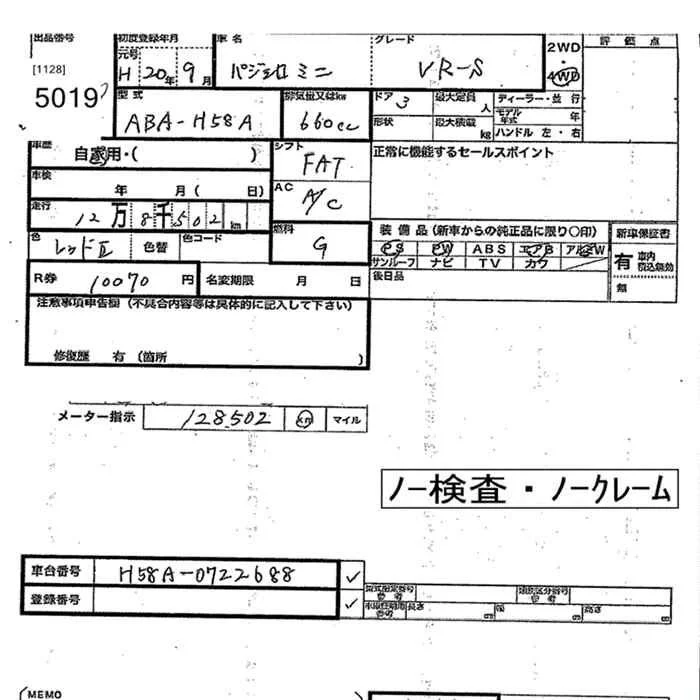 出品番号
[1128]
5019
初度登録年月
元号
H 20年 9月
車名
パジェロミニ
グレード
VR-S
2WD
4WD
評価点
型式
ABA-H58A
排気量又はkw
660cc
ドア 3
形状
最大定員 人
最大積載 kg
ディーラー・並行
モデル年式 年
ハンドル 左・右
車歴
自家用・( )
シフト
FAT
正常に機能するセールスポイント
車検
年 月( 日)
AC
A/C
走行
12万8千502km
燃料
G
装備品(新車からの純正品に限り○印)
PS PW ABS エアB アルミW
サンルーフ ナビ TV カワ
新車保証書
有 車内 積込無効
無
色
レッドII
色替
色コード
後日品
R券
10070円
名変期限 月 日
注意事項申告欄(不具合内容等は具体的に記入して下さい)
修復歴 有(箇所 )
メーター指示 128,502 km マイル
ノー検査・ノークレーム
車台番号 H58A-0722688 ✓
登録番号 ✓
型式指定番号 参考
類別区分番号 参考
長さ 幅 高さ
MEMO